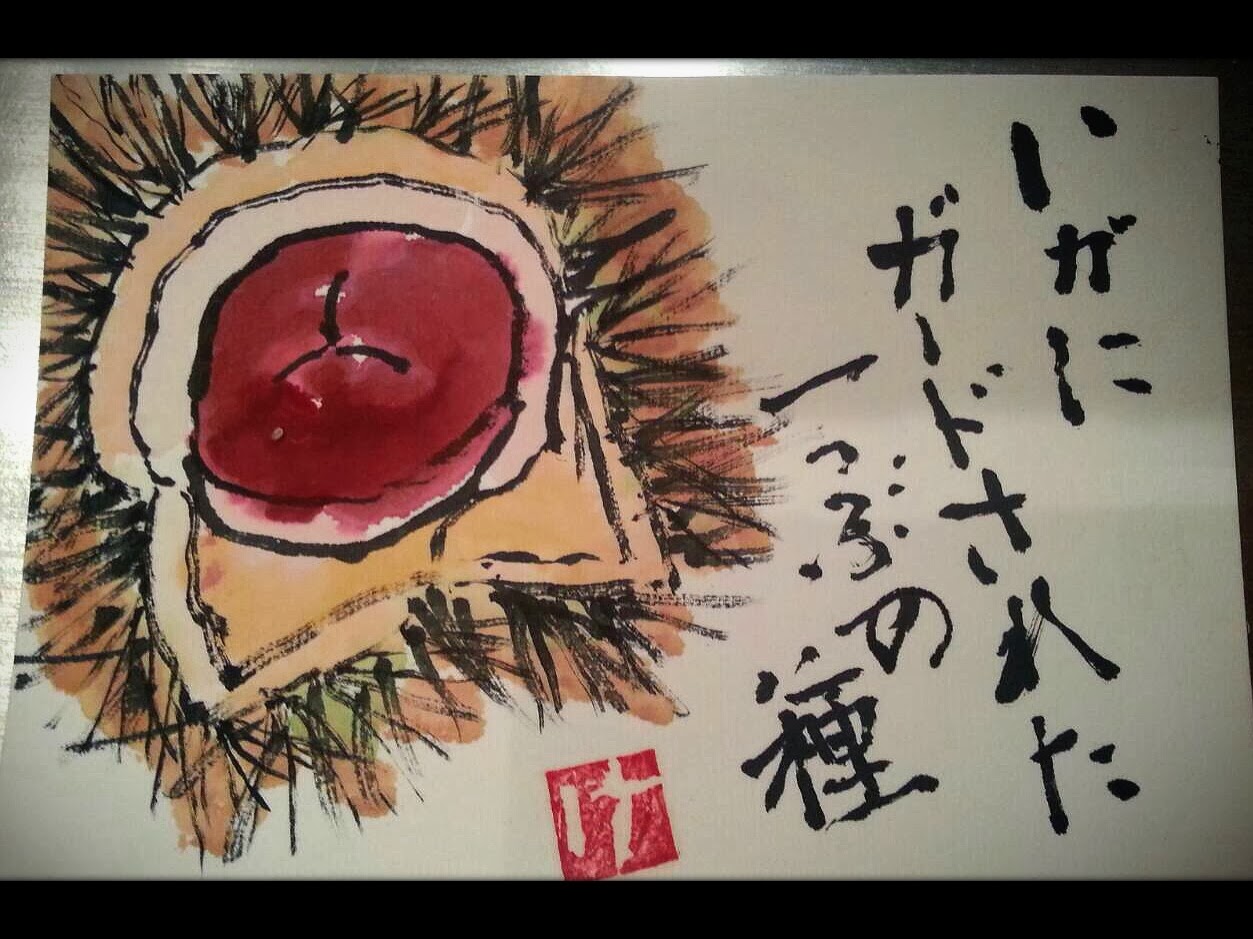 いがに
ガードされた
一つぶの
種
け